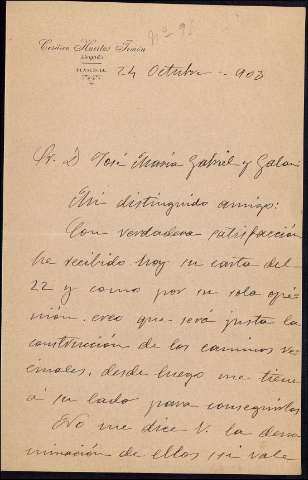 nº 9
Cesáreo Huertas Timón
Abogado
PLASENCIA
24 Octubre 903
Sr. D. José María Gabriel y Galan
Mi distinguido amigo:
Con verdadera satisfacción
he recibido hoy su carta del
22 y como por su sola opi-
nión, creo que será justa la
construcción de los caminos ve-
cinales, desde luego me tiene
á su lado para conseguirlos
No me dice V. la deno-
minación de ellos, si vale